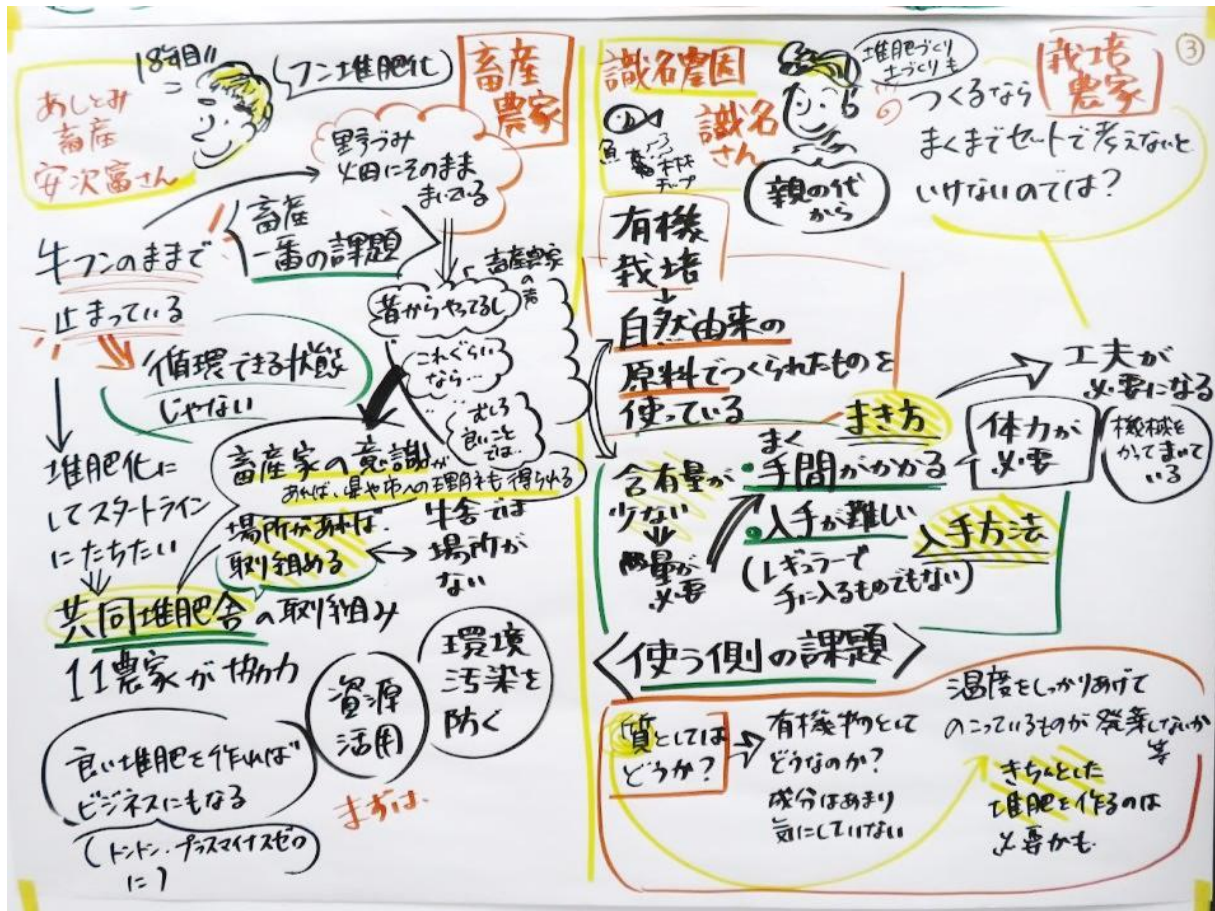 あしとみ
畜産
安次富さん
18年目!!
フン堆肥化
畜産
農家
野づみ
畑にそのまま
まいている
畜産
一番の課題
牛フンのままで
止まっている
循環できる状態
じゃない
畜産農家
の声
昔からやってるし
これぐらい
なら…
むしろ
良いこと
では…
堆肥化に
してスタートライン
にたちたい
畜産家の意識が
あれば、県や市への理解も得られる
場所があれば
取り組める
牛舎では
場所が
ない
共同堆肥舎の取り組み
11農家が協力
資源
活用
環境
汚染を
防ぐ
良い堆肥を作れば
ビジネスにもなる
(トントン・プラスマイナスゼロ
に)
まずは
③
識名農園
識名
さん
魚
チップ
堆肥づくり
土づくりも
親の代
から
栽培
農家
つくるなら
まくまでセットで考えないと
いけないのでは?
有機
栽培
自然由来の
原料でつくられたものを
使っている
まき方
工夫が
必要になる
含有量が
少ない
量が
必要
まく
・手間がかかる
体力が
必要
機械を
かってまいて
いる
・入手が難しい
(レギュラーで
手に入るものでもない)
入手方法
〈使う側の課題〉
質としては
どうか?
有機物として
どうなのか?
成分はあまり
気にしていない
温度をしっかりあげて
のこっているものが発芽しないか
等
きちんとした
堆肥を作るのは
必要かも